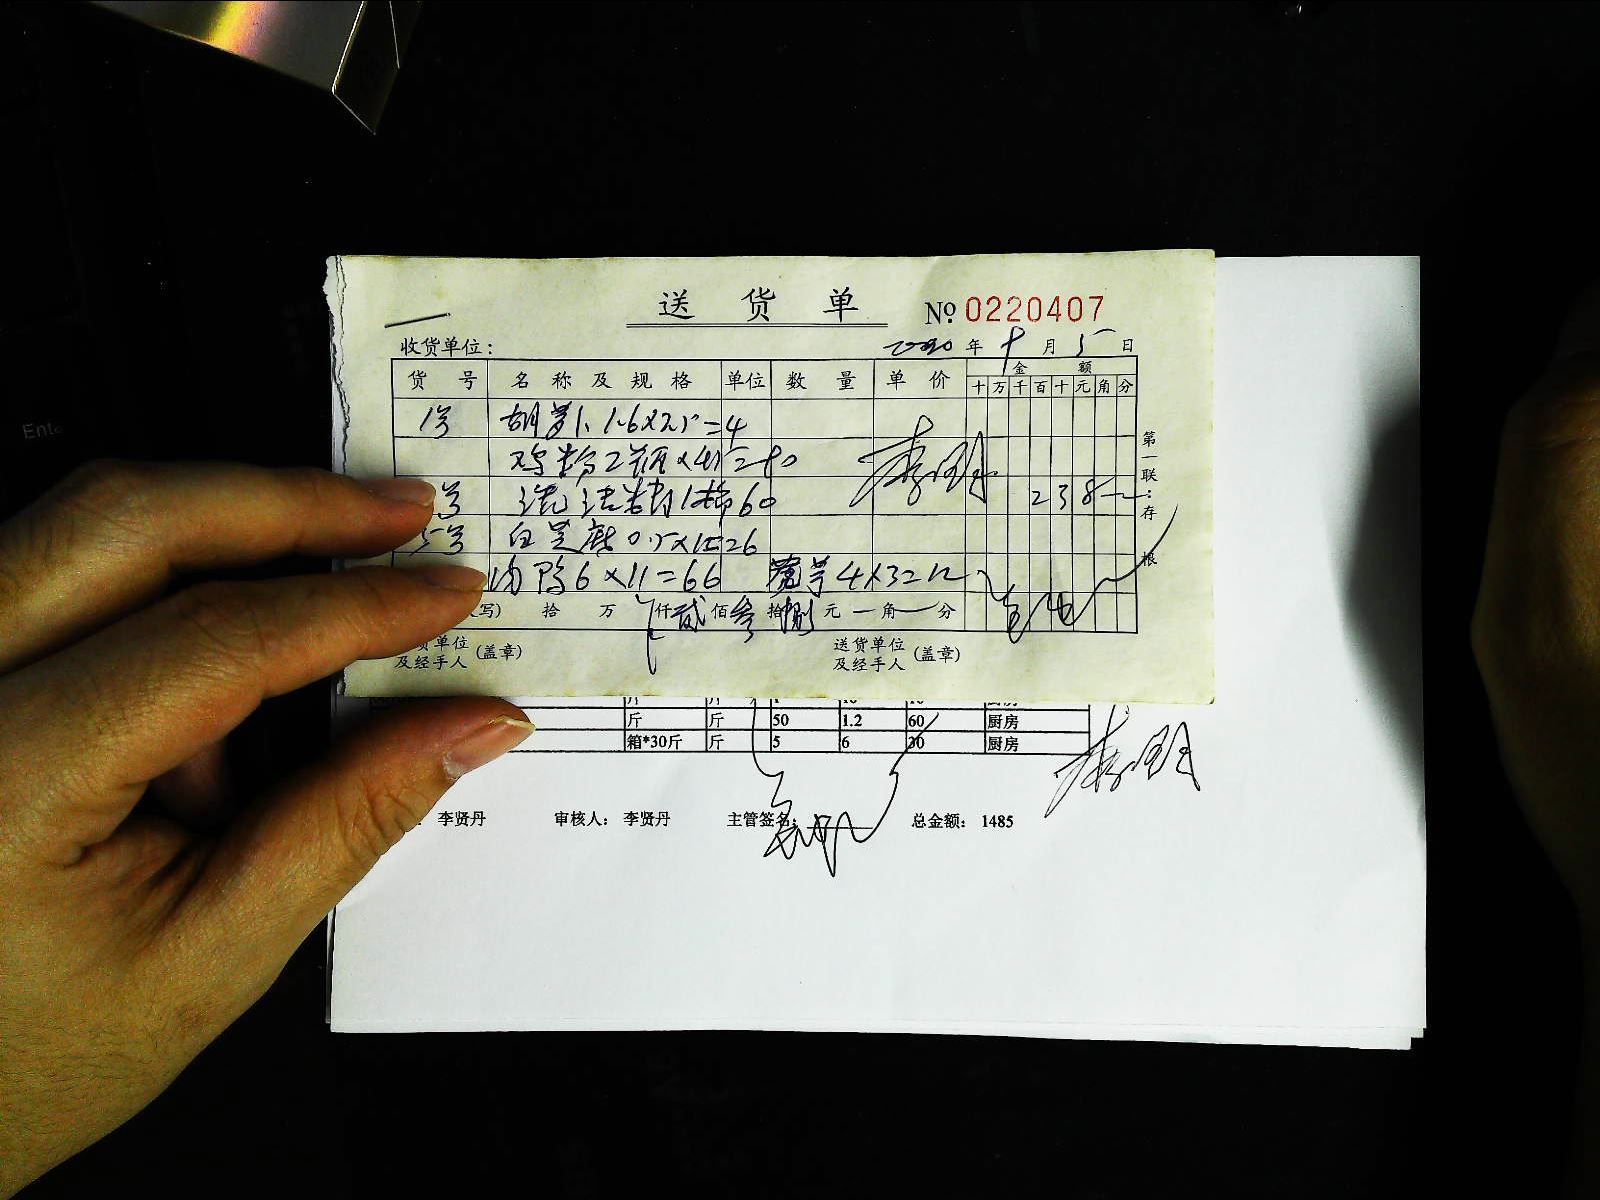 送 货 单 № 0220407
收货单位： 2020 年 十 月 5 日
货 号 名 称 及 规 格 单位 数 量 单 价 金 额
十 万 千 百 十 元 角 分
1号 胡萝卜 1.6×2.5=4
鸡粉2瓶×45=90
号 洗洁精1桶60
5号 白芝麻0.5×15=26
肉鸭6×11=66 莴芋4×3=12
238
写) 拾 万 仟 贰 佰 叁 拾 捌 元 角 分
货单位
及经手人 (盖章)
送货单位
及经手人 (盖章)
第一联：存根
斤 斤 50 1.2 60 厨房
箱*30斤 斤 5 6 30 厨房
李明
李贤丹 审核人： 李贤丹 主管签名： 总金额： 1485
Ente